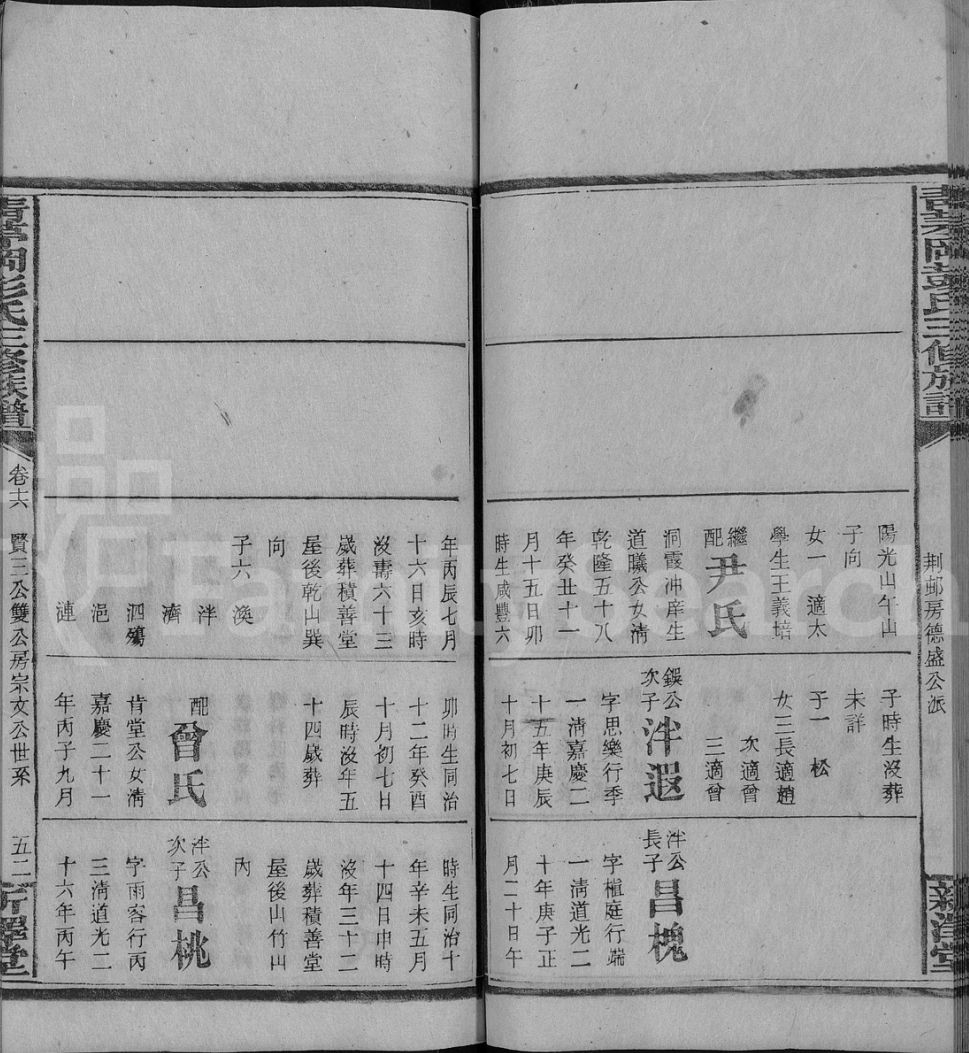 荆邮房德盛公派
陽光山午山
子向
女一適太
學生王義培
繼配尹氏
洞霞冲庠生
道曦公女清
乾隆五十八
年癸丑十一
月十五日卯
時生咸豐六
年丙辰七月
十六日亥時
沒壽六十三
歲葬積善堂
屋後乾山巽
向
子六渙
泮
濟
泗殤
浥
漣
子時生沒葬
未詳
子一松
女三長適趙
次適曾
三適曾
鏌公次子泮遐
字思樂行季
一清嘉慶二
十五年庚辰
十月初七日
卯時生同治
十二年癸酉
十月初七日
辰時沒年五
十四歲葬
配曾氏
肯堂公女清
嘉慶二十一
年丙子九月
泮公長子昌槐
字植庭行端
一清道光二
十年庚子正
月二十日午
時生同治十
年辛未五月
十四日申時
沒年三十二
歲葬積善堂
屋後山竹山
內
泮公次子昌桃
字雨容行丙
三清道光二
十六年丙午
彭氏三修族譜
卷十六
賢三公雙公房宗文公世系
五二